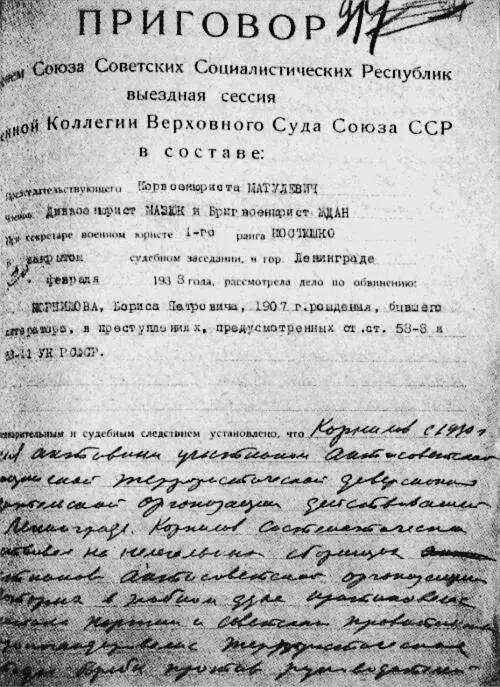 ПРИГОВОР
Союза Советских Социалистических Республик
выездная сессия
енной Коллегии Верховного Суда Союза ССР
в составе:
Председательствующего Корвоенюриста МАТУЛЕВИЧ
Членов: Диввоенюрист МАЗЮК и Бригвоенюрист ЖДАН
При секретаре военном юристе 1-го ранга КОСТЮШКО
в закрытом судебном заседании, в гор. Ленинграде
февраля 1938 года, рассмотрела дело по обвинению:
КОРНИЛОВА, Бориса Петровича, 1907 г.рождения, бывшего
литератора, в преступлениях, предусмотренных ст.ст. 58-8 и
58-11 УК РСФСР.
варительным и судебным следствием установлено, что Корнилов с 1930 г.
активным участником антисоветской
террористической
организации действовавшей
Ленинграде. Корнилов систематически
на нелегальных сборищах
антисоветской организации
в злобном духе
партии и советского правительства
террористические
борьбы против руководителей